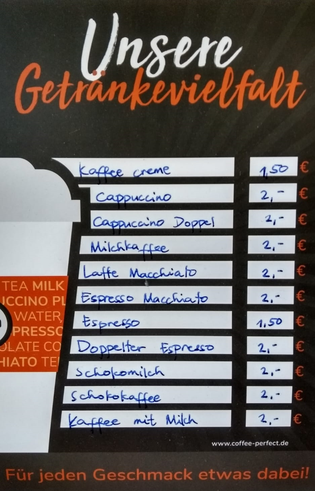 Unsere
Getränkevielfalt
Kaffee creme 1,50 €
Cappuccino 2,- €
Cappuccino Doppel 2,- €
Milchkaffee 2,- €
Latte Macchiato 2,- €
Espresso Macchiato 2,- €
Espresso 1,50 €
Doppelter Espresso 2,- €
Schokomilch 2,- €
Schokokaffee 2,- €
Kaffee mit Milch 2,- €
TEA MILK
UCCINO PL
WATER
PRESSO
OLATE CO
HIATO TE
www.coffee-perfect.de
Für jeden Geschmack etwas dabei!